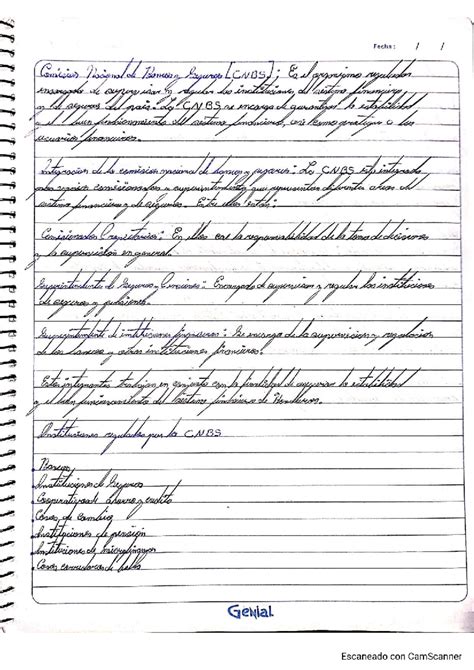 Fecha: / /
Comision Nacional de Bancos y Seguros [CNBS]: Es el organismo regulador
encargado de supervisar y regular las instituciones del sistema financiero
y de seguros del pais. La CNBS se encarga de garantizar la estabilidad
y el buen funcionamiento del sistema financiero, asi como proteger a los
usuarios financieros.
Integracion de la comision nacional de bancos y seguros: La CNBS esta integrada
por varios comisionados y superintendentes que representan diferentes areas del
sistema financiero y de seguros. Entre ellos estan:
Comisionados Propietarios: En ellos cae la responsabilidad de la toma de decisiones
y la supervision en general.
Superintendente de Seguros y Pensiones: Encargado de supervisar y regular las instituciones
de seguros y pensiones.
Superintendente de instituciones financieras: Se encarga de la supervision y regulacion
de los bancos y otras instituciones financieras.
Estos integrantes trabajan en conjunto con la finalidad de asegurar la estabilidad
y el buen funcionamiento del sistema financiero de Honduras.
Instituciones reguladas por la CNBS
Bancos
Instituciones de Seguros
Cooperativas de ahorro y credito
Casas de cambio
Instituciones de pensión
Instituciones de microfinanzas
Casas corredoras de bolsa
Genial
Escaneado con CamScanner